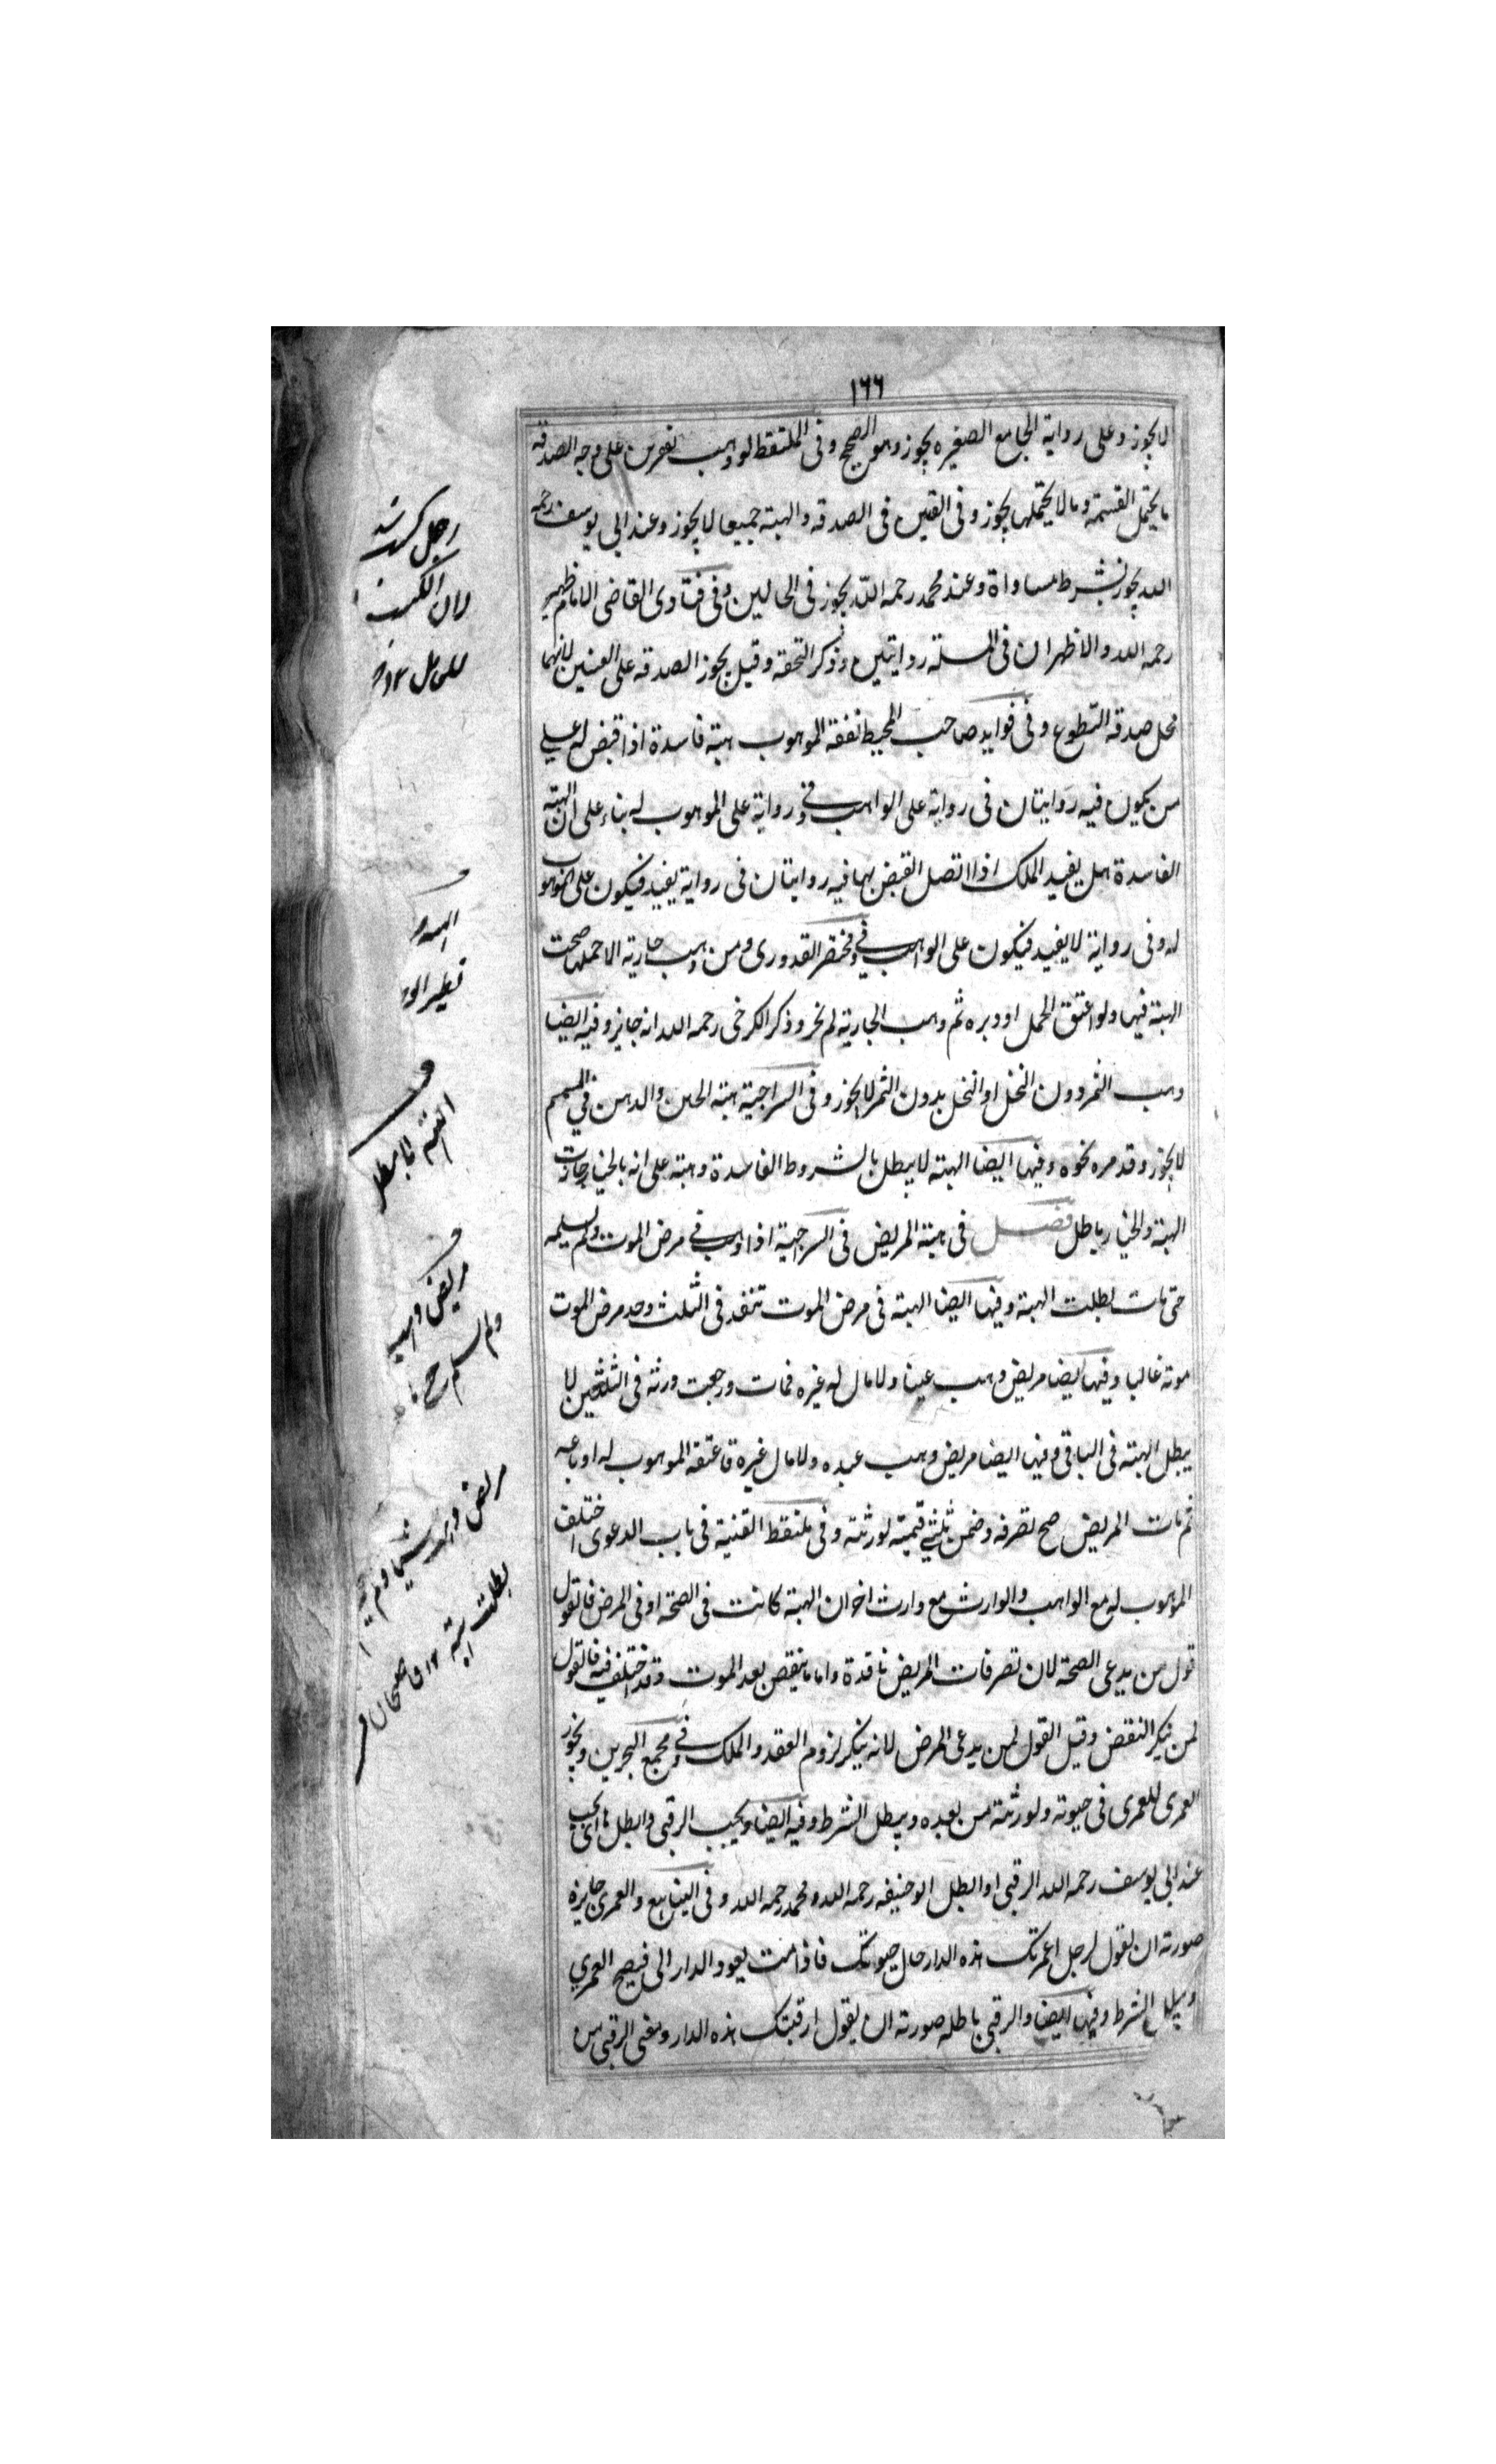 ١٦٦
لا يجوز وعلى رواية الجامع الصغيرة يجوز وهو الصحيح وفى الملتقط لو وهب نفرين على وجه الصدقه
ما يحتمل القسمة وما لا يحتملها يجوز وفى الغنيين فى الصدقه والهبة جميعا لا يجوز وعند ابي يوسف رحمه
الله يجوز بشرط مساواة وعند محمد رحمه الله يجوز فى الحالين وفى فتاوى القاضى الامام ظهير
رحمه الله والاظهر ان فى المسئلة روايتين وذكر التحفة وقيل يجوز الصدقه على الغنيين لانهما
محل صدقه التطوع وفى فوايد صاحب المحيط نفقة الموهوب هبة فاسدة اذا قبض له على
من يكون فيه روايتان فى رواية على الواهب وفى رواية على الموهوب له بناء على ان الهبة
الفاسدة هل يفيد الملك اذا اتصل القبض بها فيه روايتان فى رواية يفيد فيكون على الموهوب
له وفى رواية لا يفيد فيكون على الواهب وفى مختصر القدورى ومن وهب جارية الا حملها صحت
الهبة فيها ولو اعتق الحمل او دبره ثم وهب الجارية لم يجز وذكر الكرخى رحمه الله انه جايز وفيه ايضا
وهب الثمر دون النخل او النخل بدون الثمر لا يجوز وفى السراجية هبة الجبن والدهن فى السمسم
لا يجوز وقد مر نحوه وفيها ايضا الهبة لا يبطل بالشروط الفاسدة وهبة على انه بالخيار جازت
الهبة والخيار باطل فصل فى هبة المريض فى السراجية اذا وهب فى مرض الموت ولم يسلمه
حتى مات بطلت الهبة وفيها ايضا الهبة فى مرض الموت تنفذ فى الثلث وحد مرض الموت
موته غالبا وفيها ايضا مريض وهب عينا ولا مال له غيره فمات ورجعت ورثة فى الثلثين لا
يبطل الهبة فى الباقى وفيها ايضا مريض وهب عبده ولا مال غيره فاعتقه الموهوب له او باعه
ثم مات المريض صح تصرفه وضمن ثلثى قيمته لورثته وفى ملتقط القنية فى باب الدعوى اختلف
الموهوب له مع الواهب والوارث مع وارث اخر ان الهبة كانت فى الصحة او فى المرض فالقول
قول من يدعى الصحة لان تصرفات المريض نافذة واما ما ينقص بعد الموت وقد اختلف فيه فالقول
لمن ينكر النقض وقيل القول لمن يدعى المرض لانه ينكر لزوم العقد والملك وفى مجمع البحرين ويجوز
العمرى للمعمرى فى حيوته ولورثته من بعده ويبطل الشرط وفيه ايضا ويجب الرقبى وابطلاها اى يجب
عند ابي يوسف رحمه الله الرقبى او ابطل ابو حنيفه رحمه الله ومحمد رحمه الله وفى الينابيع والعمرى جايزة
صورته ان يقول لرجل اعمرتك هذه الدار حال حيوتك فاذا مت يعود الدار الى فيصح العمرى
ويبطل الشرط وفيها ايضا والرقبى باطله صورته ان يقول ارقبتك هذه الدار ومعنى الرقبى من
مريض وهب
بطلت هبته